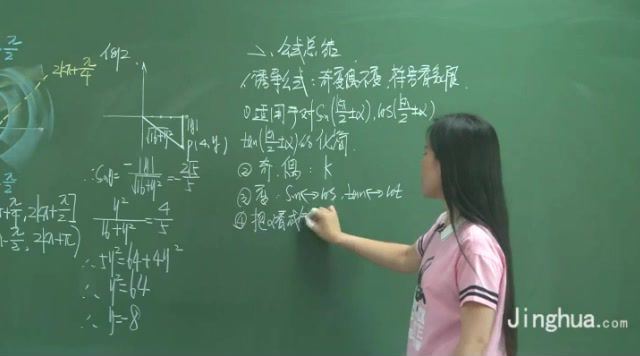 π/2
2kπ+π/4
例2.
√16+y²
|y|
P(4,y)
∴Sinθ=-|y|/√16+y²=-2√5/5
y²/16+y²=4/5
∴5y²=64+4y²
∴y²=64
∴y=-8
π/2
+π/4,2kπ+π/2]
-π/2,2kπ+π)
二、公式总结
1诱导公式:奇变偶不变,符号看象限.
①适用于对Sin(kπ/2±α),cos(kπ/2±α)
tan(kπ/2±α)的化简.
②奇.偶:k
③变:Sin↔cos.tan↔cot
④把α看成
Jinghua.com